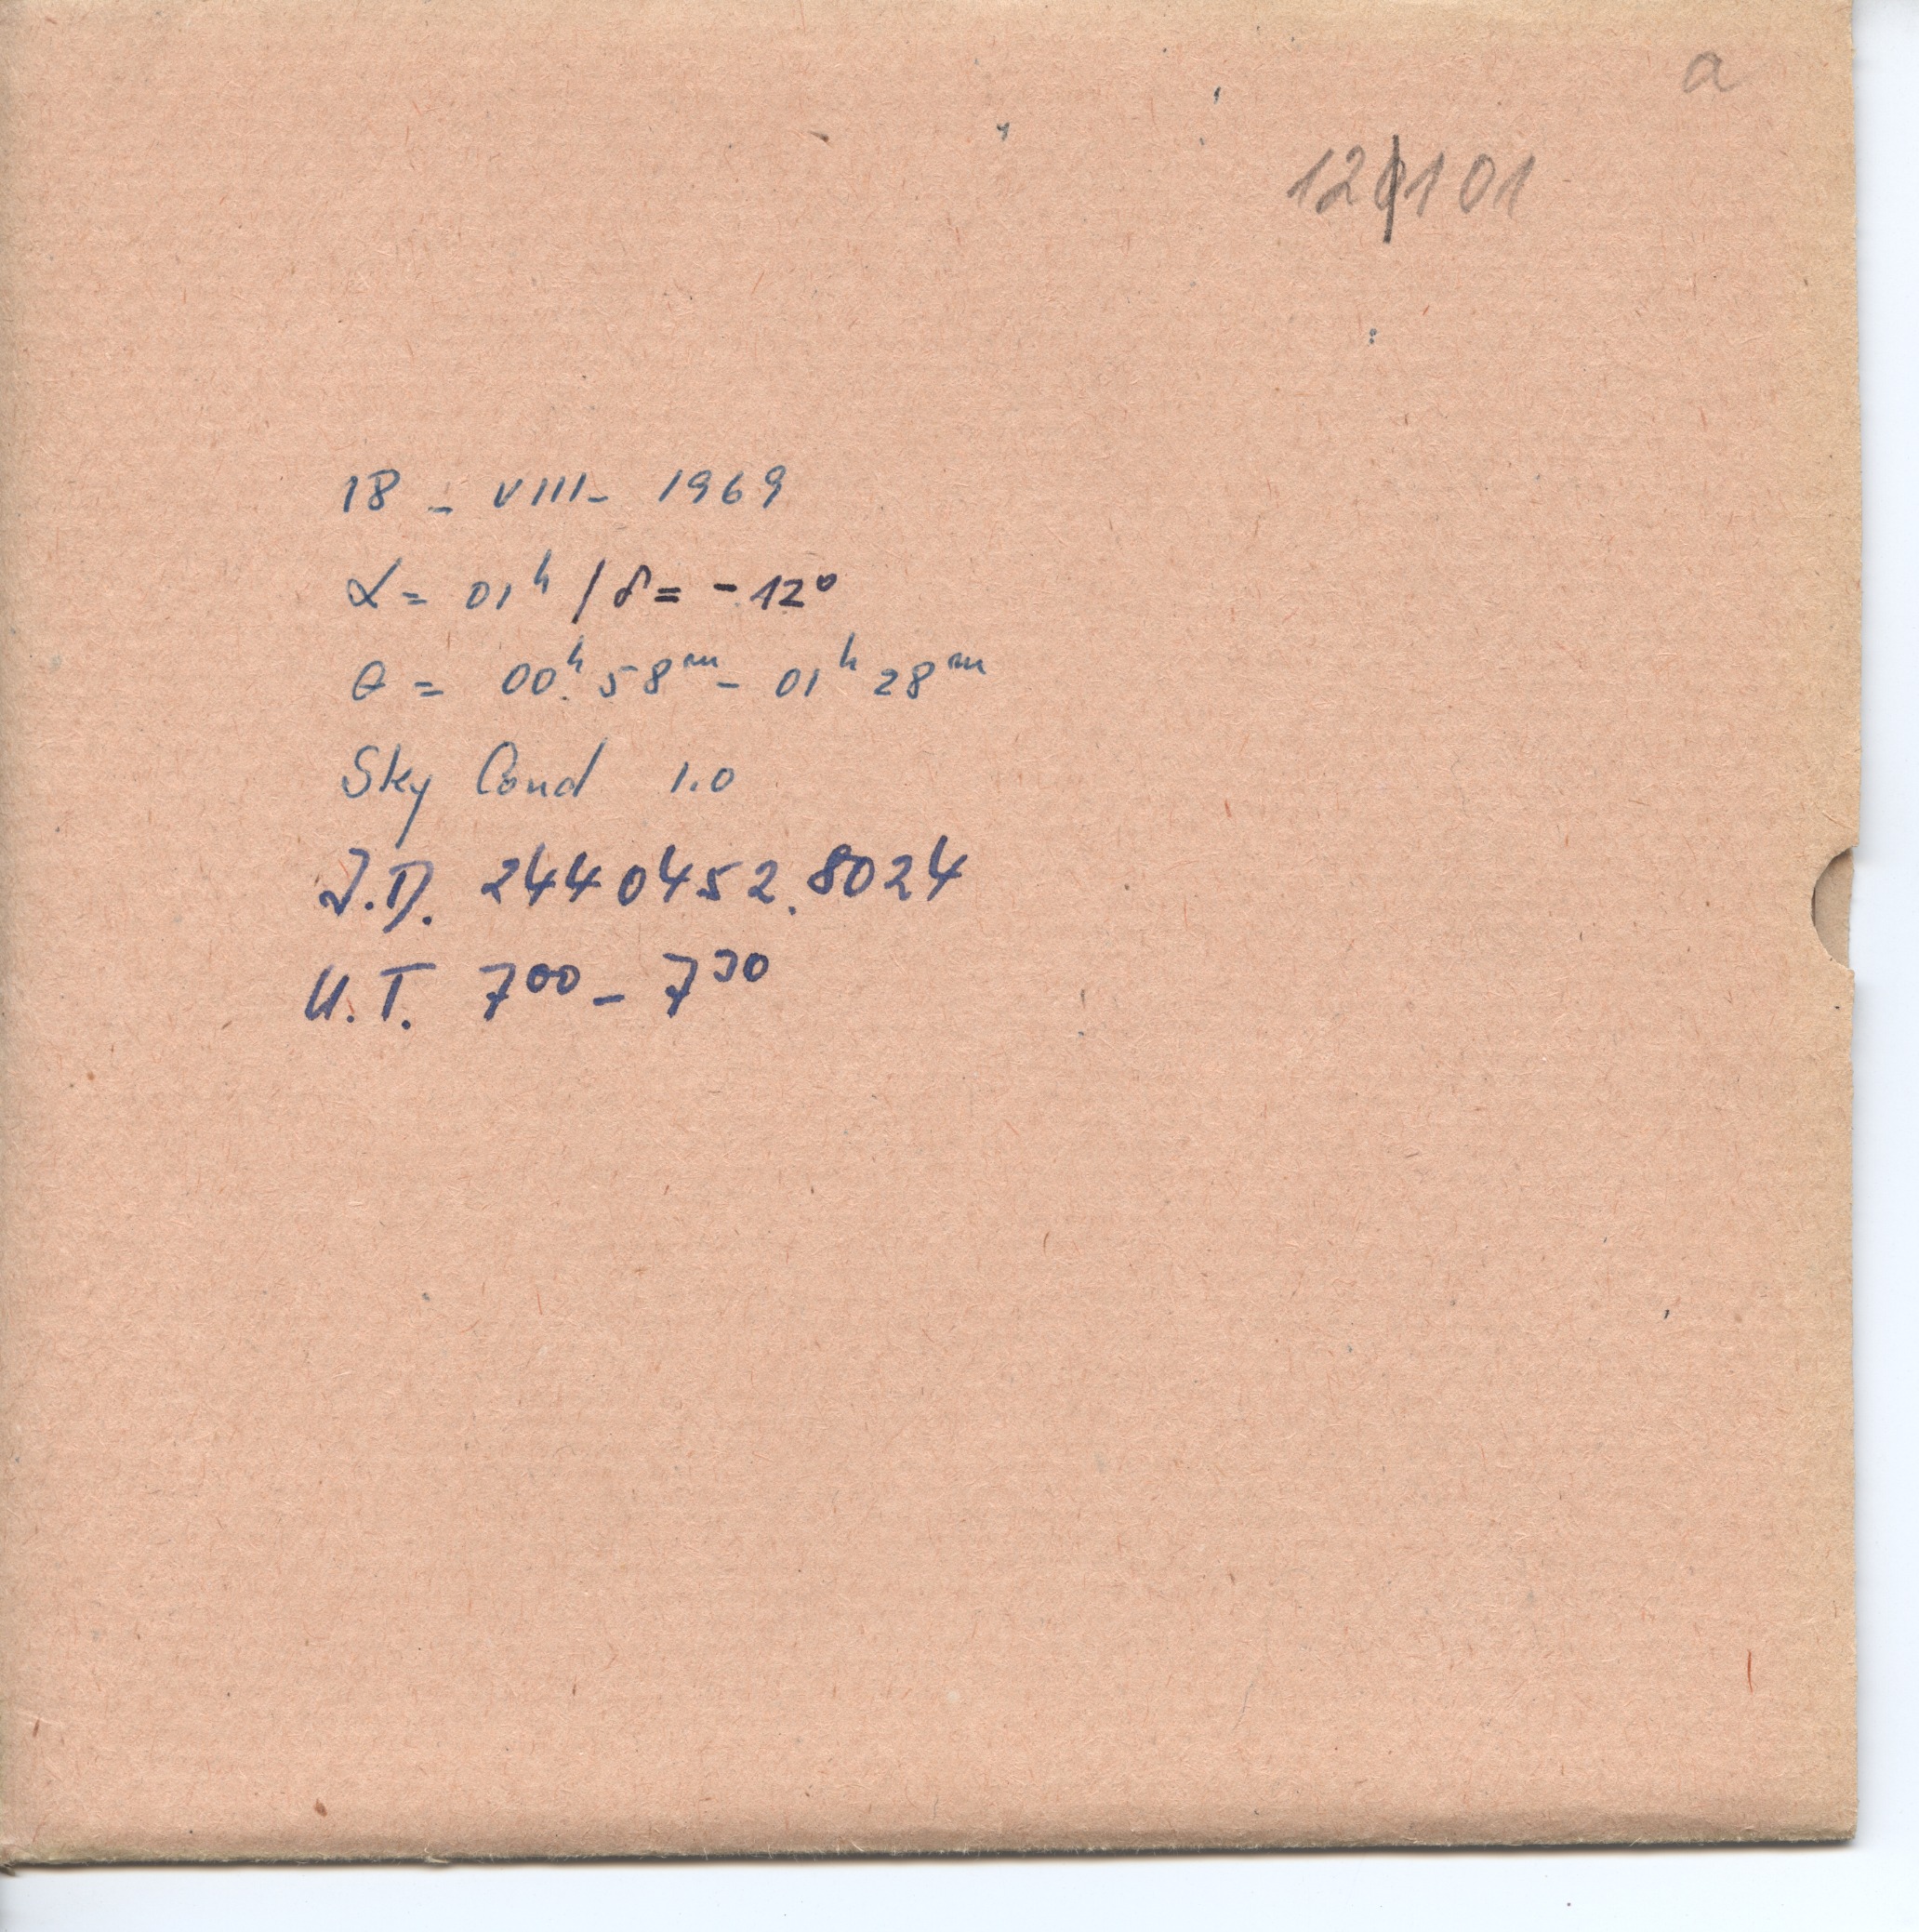 a
12101
18 - VIII - 1969
α = 01ʰ / δ = -12°
θ = 00ʰ 58ᵐ - 01ʰ 28ᵐ
Sky Cond 1.0
J.D. 2440452.8024
U.T. 7⁰⁰ - 7³⁰